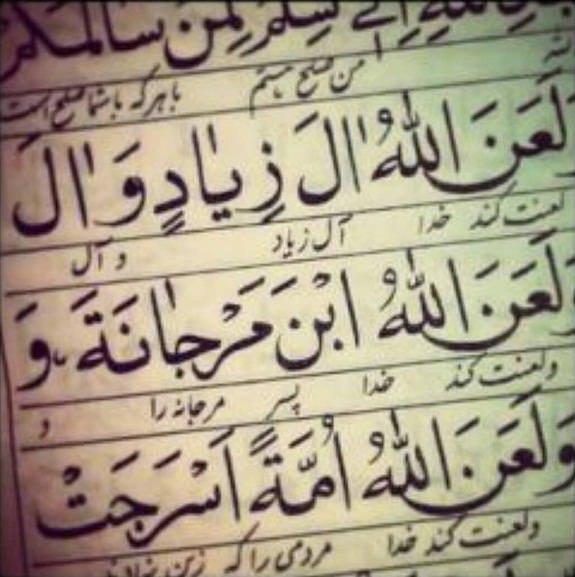 سِلْمٌ لِمَنْ سَالَمَكُمْ
من صلح هستم با هر که با شما صلح است
وَلَعَنَ اللّٰهُ اٰلَ زِيٰادٍ وَ اٰلَ
لعنت کند خدا آل زیاد و آل
وَلَعَنَ اللّٰهُ ابْنَ مَرْجٰانَةَ وَ
ولعنت کند خدا پسر مرجانه را و
وَلَعَنَ اللّٰهُ اُمَّةً اَسْرَجَتْ
ولعنت کند خدا مردمی را که زین